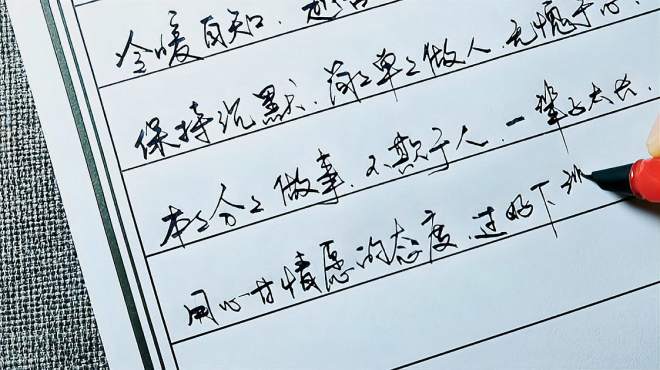 冷暖自知.
保持沉默.简々单々做人.无愧于心.
本々分々做事.不欺于人.一辈子太长.
用心甘情愿的态度.过好下